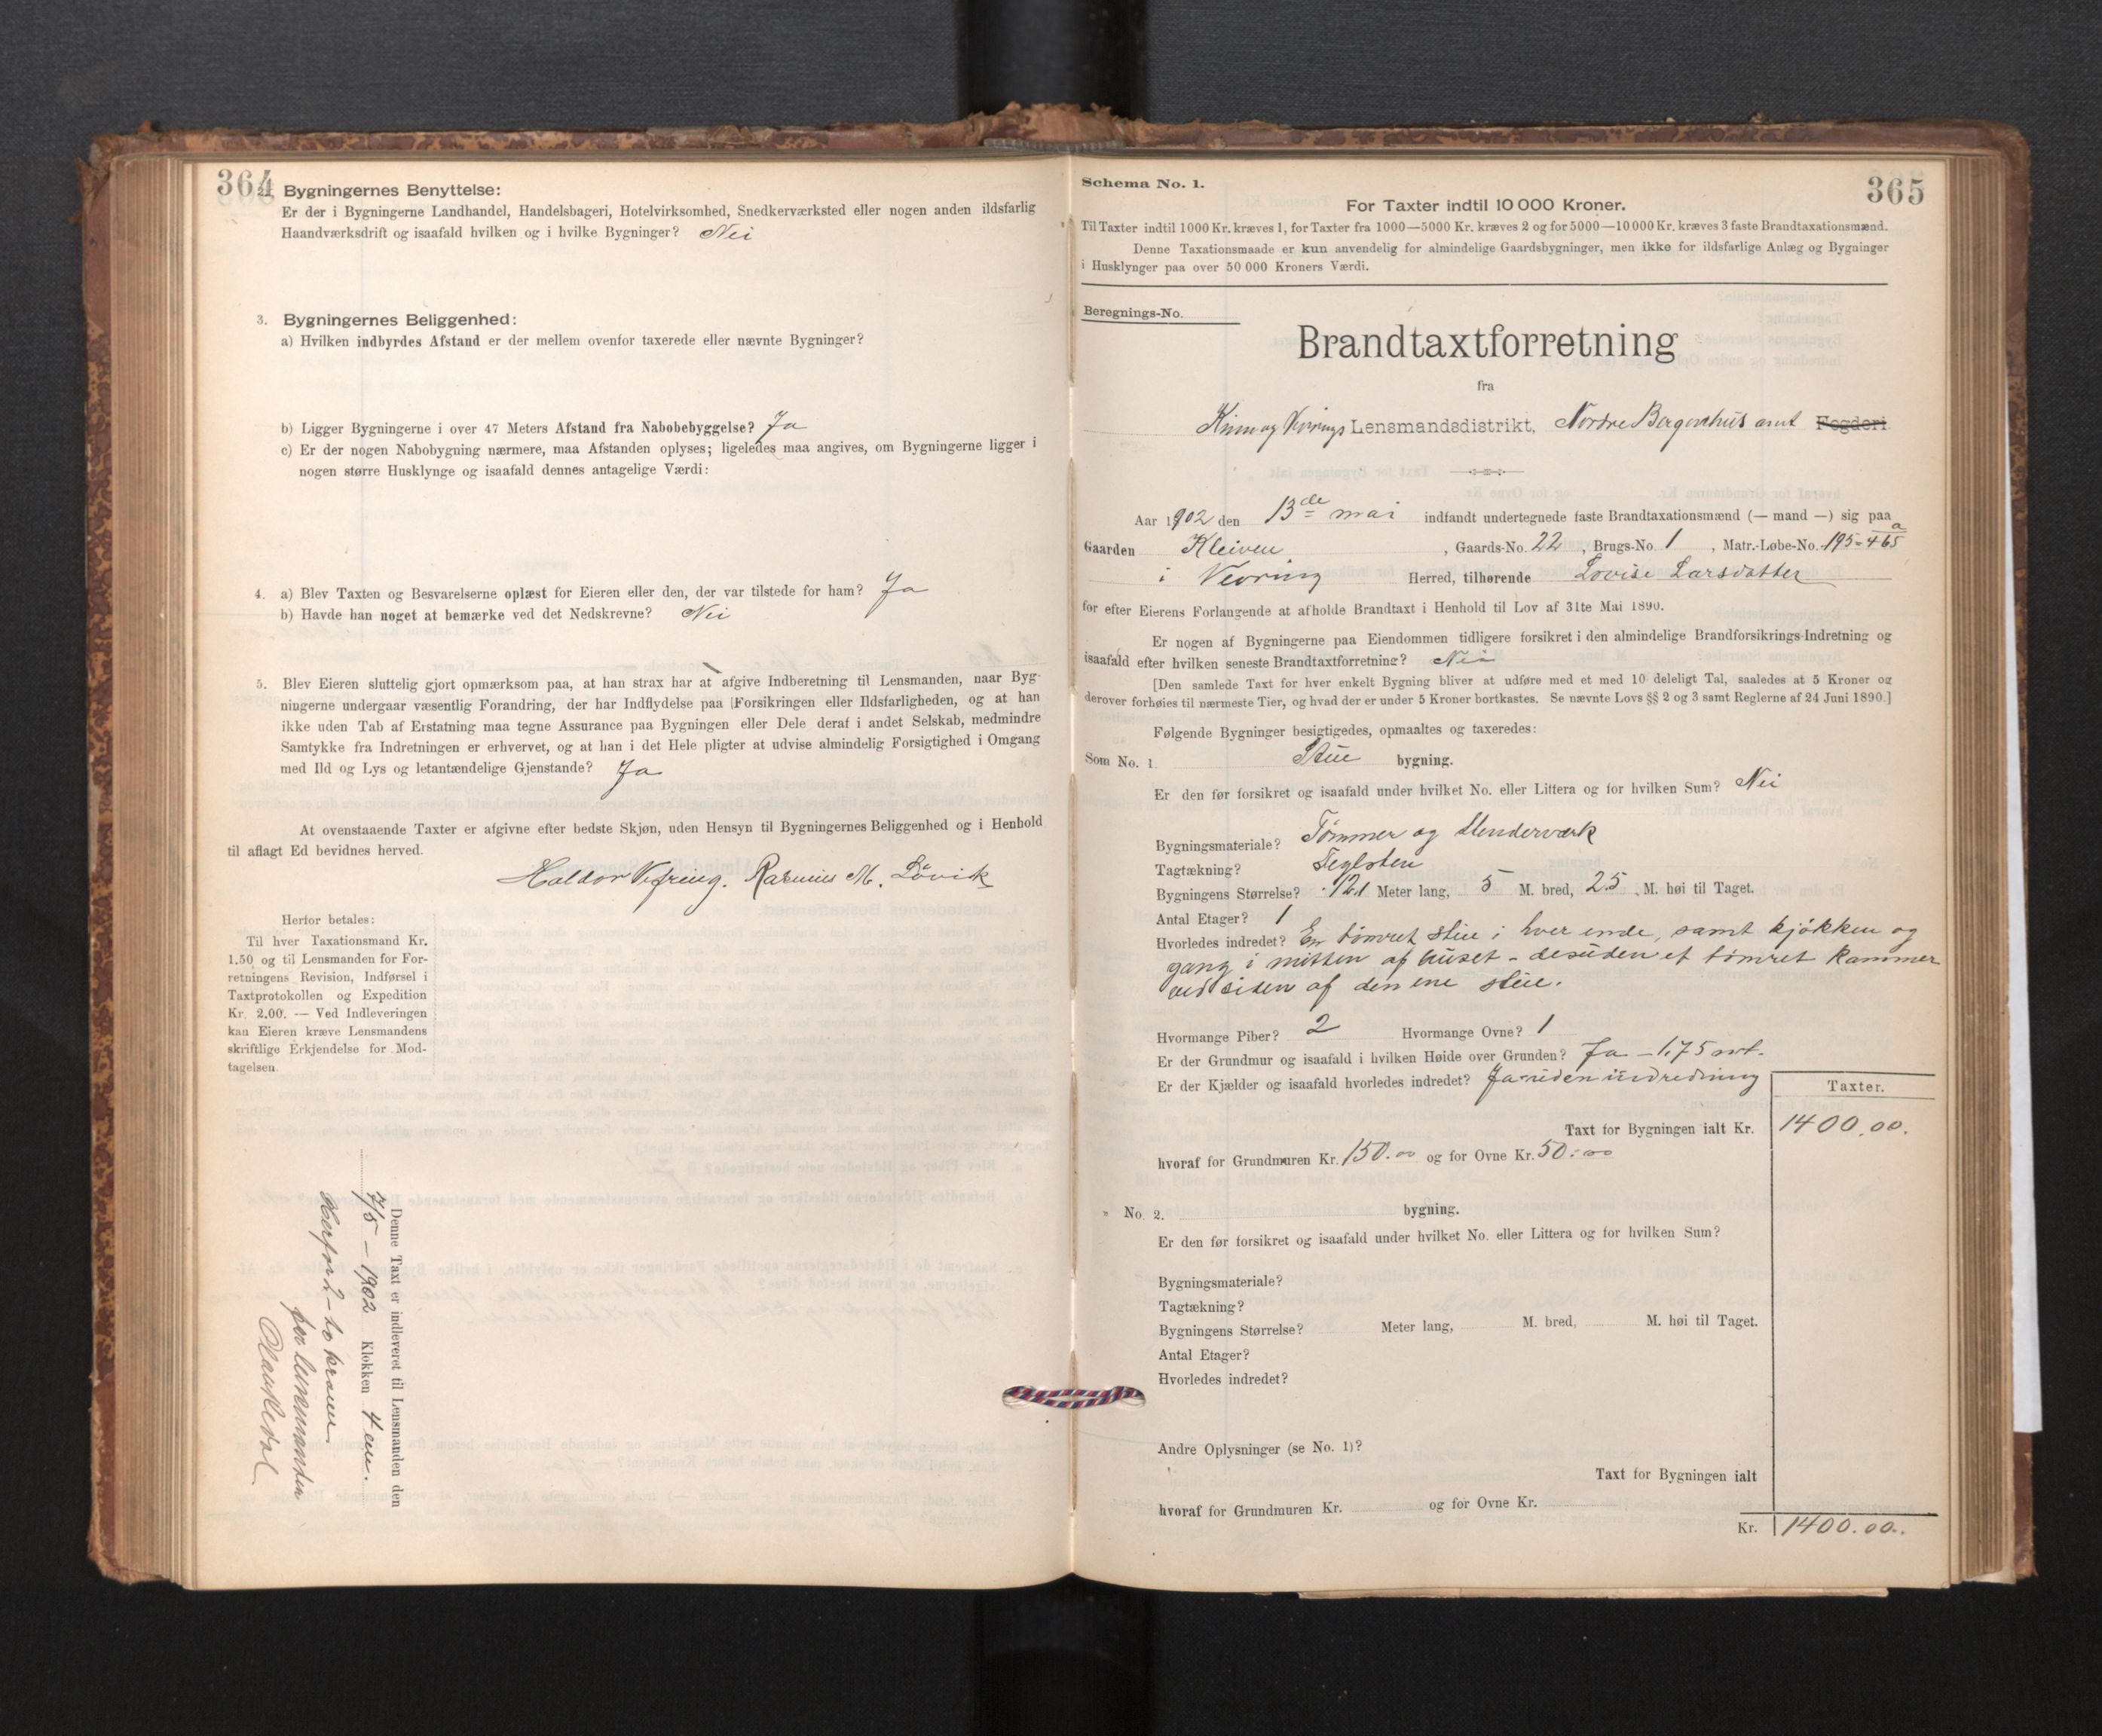 364
2. Bygningernes Benyttelse:
Er der i Bygningerne Landhandel, Handelsbageri, Hotelvirksomhed, Snedkerværksted eller nogen anden ildsfarlig
Haandværksdrift og isaafald hvilken og i hvilke Bygninger? Nei
3. Bygningernes Beliggenhed:
a) Hvilken indbyrdes Afstand er der mellem ovenfor taxerede eller nævnte Bygninger?
b) Ligger Bygningerne i over 47 Meters Afstand fra Nabobebyggelse? Ja
c) Er der nogen Nabobygning nærmere, maa Afstanden oplyses; ligeledes maa angives, om Bygningerne ligger i
nogen større Husklynge og isaafald dennes antagelige Værdi:
4. a) Blev Taxten og Besvarelserne oplæst for Eieren eller den, der var tilstede for ham? Ja
b) Havde han noget at bemærke ved det Nedskrevne? Nei
5. Blev Eieren sluttelig gjort opmærksom paa, at han strax har at afgive Indberetning til Lensmanden, naar Byg-
ningerne undergaar væsentlig Forandring, der har Indflydelse paa Forsikringen eller Ildsfarligheden, og at han
ikke uden Tab af Erstatning maa tegne Assurance paa Bygningen eller Dele deraf i andet Selskab, medmindre
Samtykke fra Indretningen er erhvervet, og at han i det Hele pligter at udvise almindelig Forsigtighed i Omgang
med Ild og Lys og letantændelige Gjenstande? Ja
At ovenstaaende Taxter er afgivne efter bedste Skjøn, uden Hensyn til Bygningernes Beliggenhed og i Henhold
til aflagt Ed bevidnes herved.
Haldor Vefring. Rasmus M. Løvik
Herfor betales:
Til hver Taxationsmand Kr.
1.50 og til Lensmanden for For-
retningens Revision, Indførsel i
Taxtprotokollen og Expedition
Kr. 2.00. — Ved Indleveringen
kan Eieren kræve Lensmandens
skriftlige Erkjendelse for Mod-
tagelsen.
Denne Taxt er indleveret til Lensmanden den
7/5 – 1902 Klokken 4 em.
Herfor 2 – to kroner
for lensmanden
365
Schema No. 1.
For Taxter indtil 10 000 Kroner.
Til Taxter indtil 1000 Kr. kræves 1, for Taxter fra 1000—5000 Kr. kræves 2 og for 5000—10 000 Kr. kræves 3 faste Brandtaxationsmænd.
Denne Taxationsmaade er kun anvendelig for almindelige Gaardsbygninger, men ikke for ildsfarlige Anlæg og Bygninger
i Husklynger paa over 50 000 Kroners Værdi.
Beregnings-No.
Brandtaxtforretning
fra
Kinn og Vevrings Lensmandsdistrikt, Nordre Bergenhus amt Fogderi
Aar 1902 den 13de mai indfandt undertegnede faste Brandtaxationsmænd (— mand —) sig paa
Gaarden Kleiven, Gaards-No. 22, Brugs-No. 1, Matr.-Løbe-No. 195-465 a
i Vevring Herred, tilhørende Lovise Larsdatter
for efter Eierens Forlangende at afholde Brandtaxt i Henhold til Lov af 31te Mai 1890.
Er nogen af Bygningerne paa Eiendommen tidligere forsikret i den almindelige Brandforsikrings-Indretning og
isaafald efter hvilken seneste Brandtaxtforretning? Nei
[Den samlede Taxt for hver enkelt Bygning bliver at udføre med et med 10 deleligt Tal, saaledes at 5 Kroner og
derover forhøies til nærmeste Tier, og hvad der er under 5 Kroner bortkastes. Se nævnte Lovs §§ 2 og 3 samt Reglerne af 24 Juni 1890.]
Følgende Bygninger besigtigedes, opmaaltes og taxeredes:
Som No. 1. Stue bygning.
Er den før forsikret og isaafald under hvilket No. eller Littera og for hvilken Sum? Nei
Bygningsmateriale? Tømmer og Stenderværk
Tagtækning? Teglsten
Bygningens Størrelse? 12.1 Meter lang, 5 M. bred, 2.5 M. høi til Taget.
Antal Etager? 1
Hvorledes indredet? En tømret stue i hver ende, samt kjøkken og
gang i mitten af huset - desuden et tømret kammer
ved siden af den ene stue.
Hvormange Piber? 2 Hvormange Ovne? 1
Er der Grundmur og isaafald i hvilken Høide over Grunden? Ja – 1.75 mt.
Er der Kjælder og isaafald hvorledes indredet? Ja uden indredning
Taxter.
Taxt for Bygningen ialt Kr. 1400.00.
hvoraf for Grundmuren Kr. 150.00 og for Ovne Kr. 50.00
" No. 2. bygning.
Er den før forsikret og isaafald under hvilket No. eller Littera og for hvilken Sum?
Bygningsmateriale?
Tagtækning?
Bygningens Størrelse? Meter lang, M. bred, M. høi til Taget.
Antal Etager?
Hvorledes indredet?
Andre Oplysninger (se No. 1)?
Taxt for Bygningen ialt
hvoraf for Grundmuren Kr. og for Ovne Kr.
Kr. 1400.00.